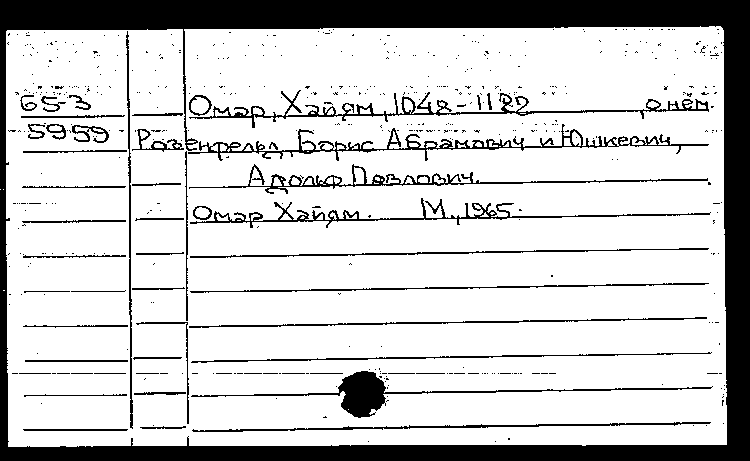 65-3 Омар, Хайям, 1048-1122 , о нем.
5959 Розенфельд, Борис Абрамович и Юшкевич,
Адольф Павлович.
Омар Хайям. М., 1965.